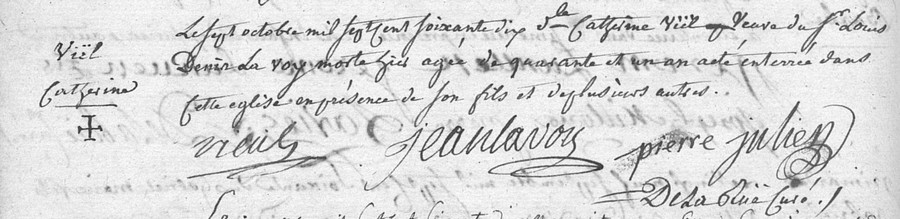 Viël
Catherine
Le sept octobre mil sept cent soixante dix dlle Catherine Viël veuve du Sr Louis
Denis La voy morte hier agée de quarante et un an a eté enterrée dans
Cette eglise en présence de son fils et de plusieurs autres.
viell
jean lavoy
pierre julien
De La Ruë Curé